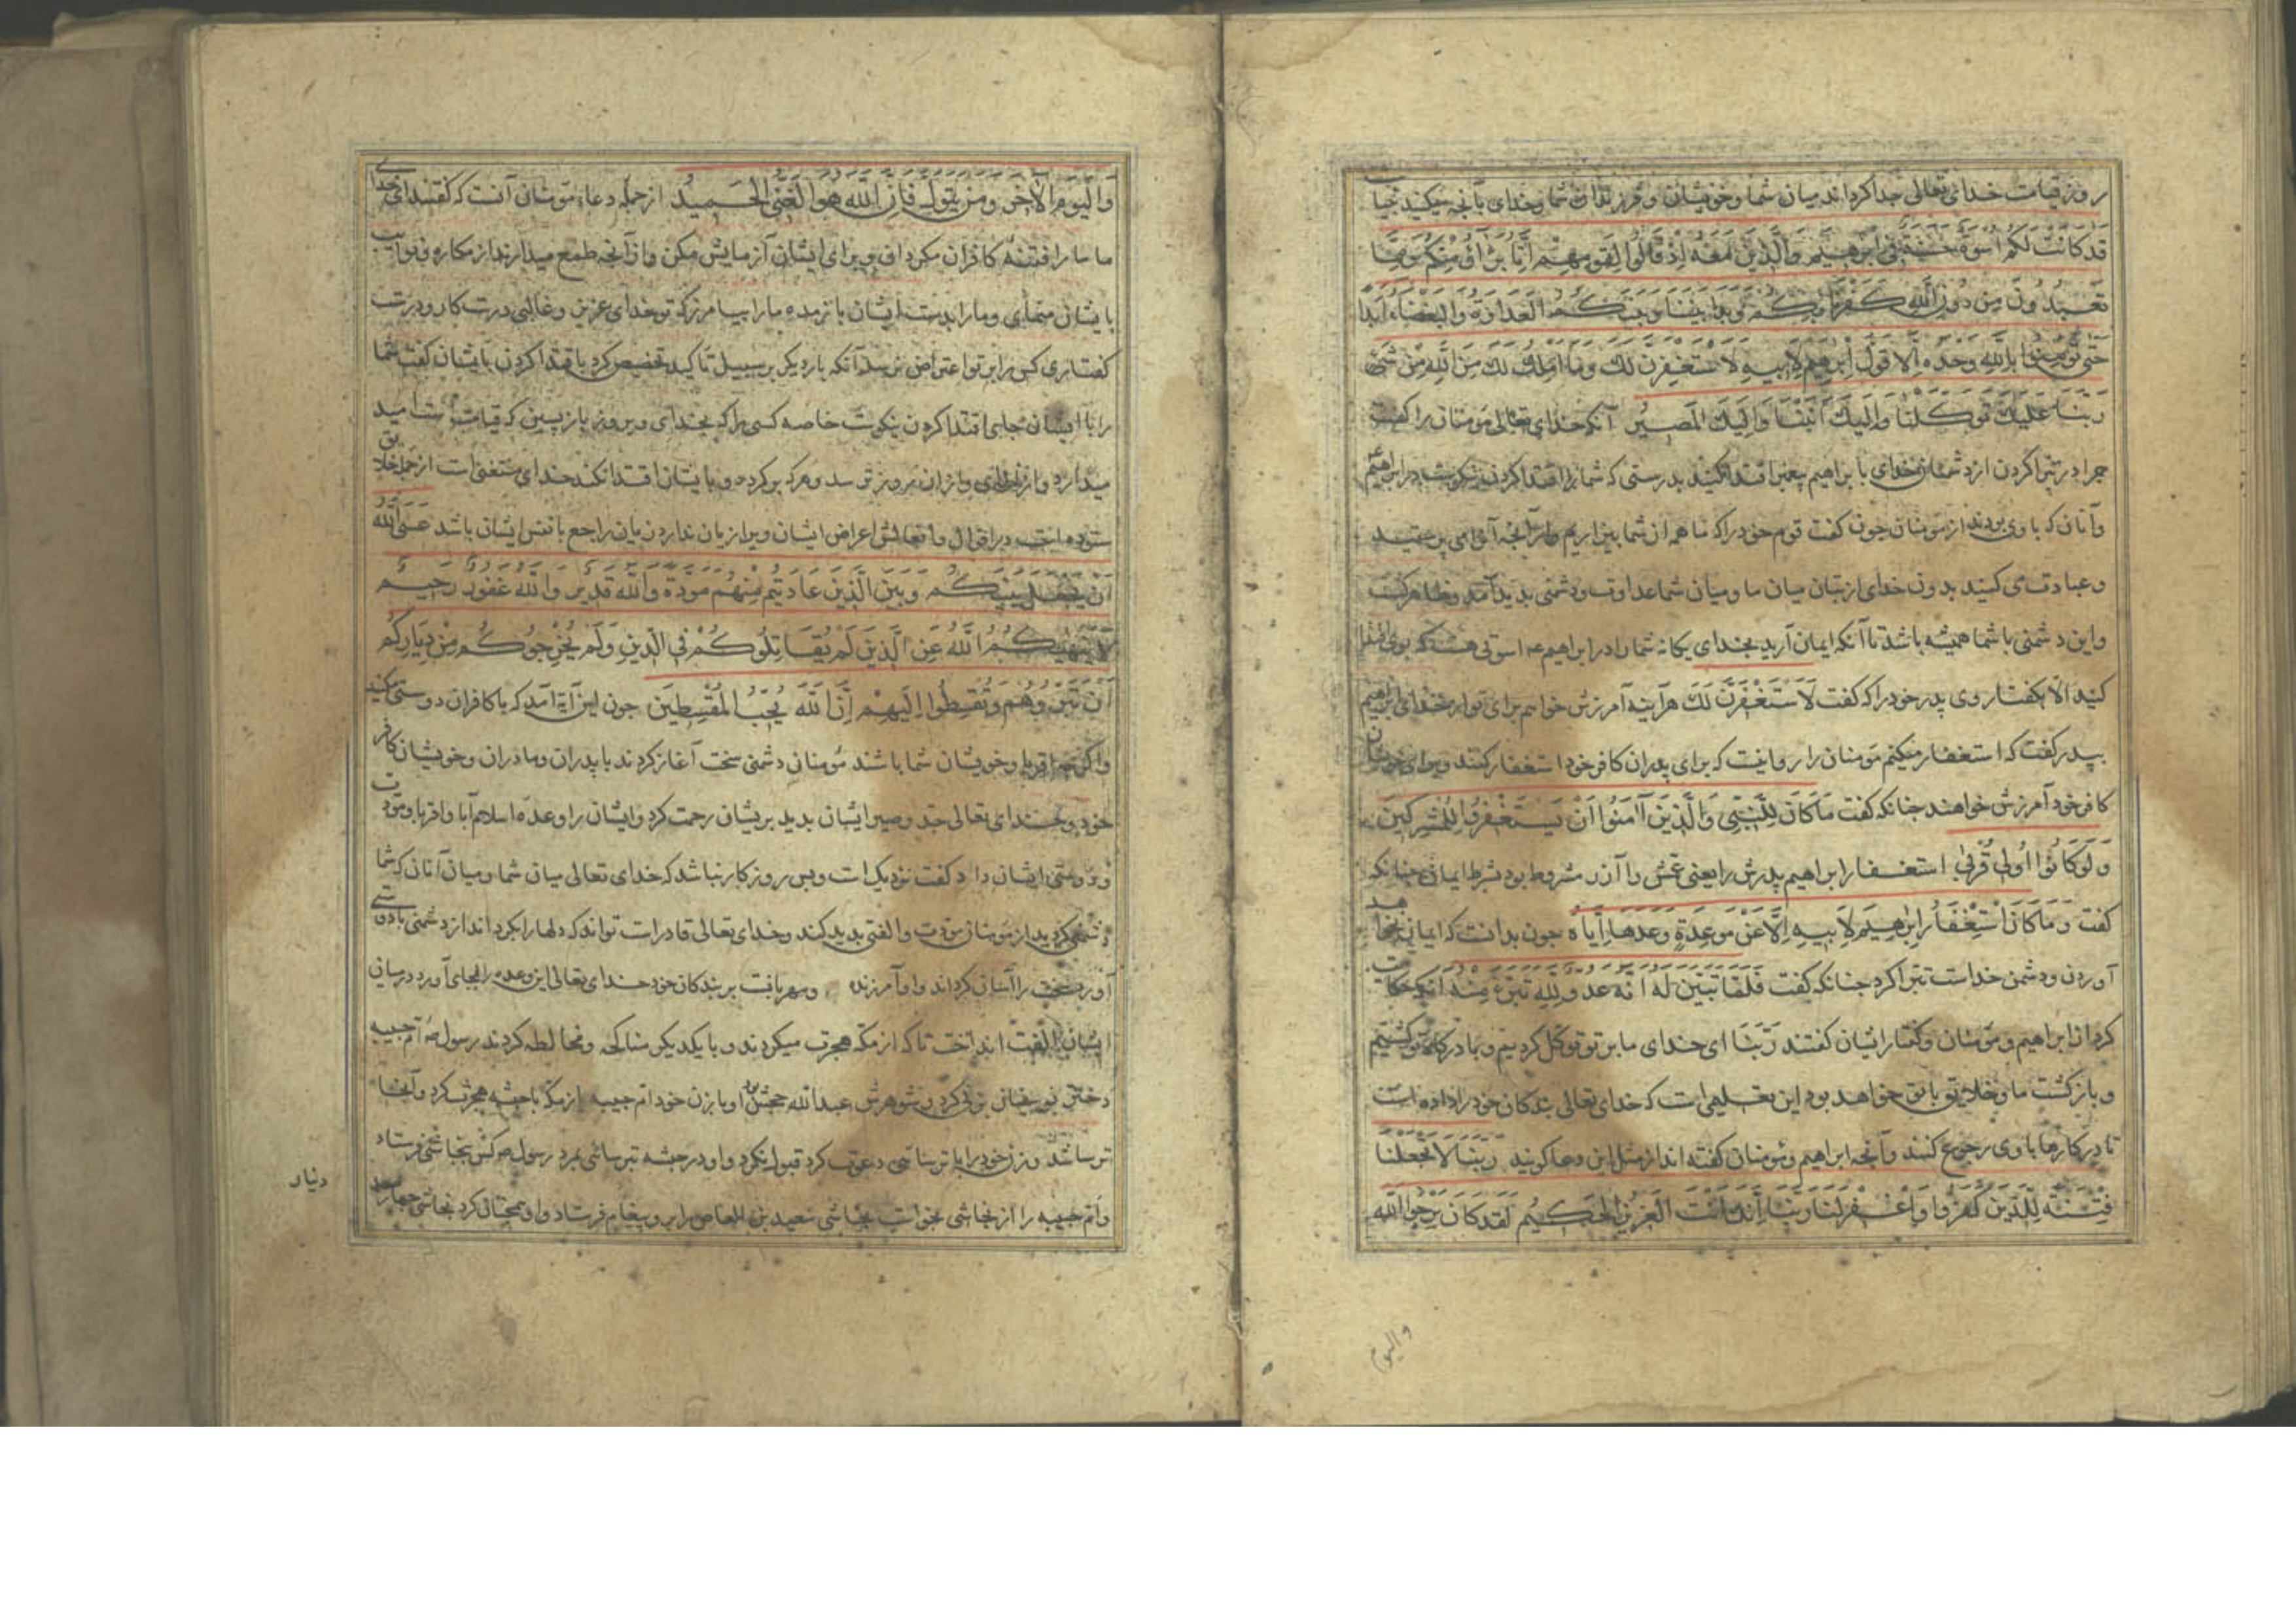 روز قیامت خدای تعالی جدا کرداند میان شما و خویشان و فرزندان شما و خدای بآنچه میکنید بینا
قَدْ كَانَتْ لَكُمْ اُسْوَةٌ حَسَنَةٌ فِي اِبْرٰهِيْمَ وَالَّذِيْنَ مَعَهُ اِذْ قَالُوْا لِقَوْمِهِمْ اِنَّا بُرَآؤُ مِنْكُمْ وَمِمَّا
تَعْبُدُوْنَ مِنْ دُوْنِ اللّٰهِ كَفَرْنَا بِكُمْ وَبَدَا بَيْنَنَا وَبَيْنَكُمُ الْعَدَاوَةُ وَالْبَغْضَاءُ اَبَدًا
حَتّٰى تُؤْمِنُوْا بِاللّٰهِ وَحْدَهُ اِلَّا قَوْلَ اِبْرٰهِيْمَ لِاَبِيْهِ لَاَسْتَغْفِرَنَّ لَكَ وَمَا اَمْلِكُ لَكَ مِنَ اللّٰهِ مِنْ شَيْءٍ
رَبَّنَا عَلَيْكَ تَوَكَّلْنَا وَاِلَيْكَ اَنَبْنَا وَاِلَيْكَ الْمَصِيْرُ آنکه خدای تعالی مؤمنان را کفت
چرا در تبرا کردن از دشمنان خدای با براهیم پیغمبر اقتدا نکنید بدرستی که شما را اقتدا کردن نیکوست در ابراهیم
و آنان که با وی بودند از مؤمنان چون کفت قوم خود را که ما همه از شما بیزاریم و از آنچه آنرا می پرستید
و عبادت می کنید بدون خدای از بتان میان ما و میان شما عداوت و دشمنی بدید آمد و ظاهر کشت
و این دشمنی با شما همیشه باشد تا آنکه ایمان آرید بخدای یکانه شما را در ابراهیم عم اسوتی هست که بوی اقتدا
کنید الا بکفتار وی پدر خود را که کفت لَاَسْتَغْفِرَنَّ لَكَ هر آینه آمرزش خواهم برای تو از خدای ابراهیم
بپدر کفت که استغفار میکنم مؤمنان را روا نیست که برای پدران کافر خود استغفار کنند و برای خویشان
کافر خود آمرزش خواهند چنانکه کفت مَا كَانَ لِلنَّبِيِّ وَالَّذِيْنَ اٰمَنُوْا اَنْ يَسْتَغْفِرُوْا لِلْمُشْرِكِيْنَ
وَلَوْ كَانُوْا اُولِي قُرْبٰى استغفار ابراهیم پدرش را یعنی عمش را آزر مشروط بود بشرط ایمان چنانکه
کفت وَمَا كَانَ اسْتِغْفَارُ اِبْرٰهِيْمَ لِاَبِيْهِ اِلَّا عَنْ مَوْعِدَةٍ وَعَدَهَا اِيَّاهُ چون بدانست که ایمان نخواهد
آوردن و دشمن خداست تبرا کرد چنانکه کفت فَلَمَّا تَبَيَّنَ لَهُ اَنَّهُ عَدُوٌّ لِلّٰهِ تَبَرَّأَ مِنْهُ آنکه حکایت
کرد از ابراهیم و مؤمنان و کفتار ایشان کفتند رَبَّنَا ای خدای ما بر تو توکل کردیم و با درکاه تو کشتیم
و بازکشت ما و خلایق با تو خواهد بود این تعلیمی است که خدای تعالی بندکان خود را داده است
تا در کارها با وی رجوع کنند و آنچه ابراهیم و مؤمنان کفته اند از مثل این دعا کویند رَبَّنَا لَا تَجْعَلْنَا
فِتْنَةً لِلَّذِيْنَ كَفَرُوْا وَاغْفِرْ لَنَا رَبَّنَا اِنَّكَ اَنْتَ الْعَزِيْزُ الْحَكِيْمُ لَقَدْ كَانَ يَرْجُوا اللّٰهَ
والیوم
وَالْيَوْمَ الْاٰخِرَ وَمَنْ يَتَوَلَّ فَاِنَّ اللّٰهَ هُوَ الْغَنِيُّ الْحَمِيْدُ از جمله دعاء مؤمنان آنست که کفتند ای خدای
ما ما را فتنه کافران مکردان و برای ایشان آزمایش مکن و از آنچه طمع میدارند از مکاره و نوایب
بایشان منمای و ما را بدست ایشان باز مده ما را بیامرز که تو خدای عزیز و غالبی درست کار و درست
کفتاری کس را بر تو اعتراض نرسد آنکه بار دیکر بر سبیل تاکید تخصیص کرد باقتدا کردن بایشان کفت شما
را با ایشان بجای اقتدا کردن نیکوست خاصه کسی را که بخدای و بروز بازپسین که قیامت است امید
میدارد و از خدای و از آن روز ترسد و هرکه برکرده و بایشان اقتدا نکند خدای مستغنی است از جمله خلایق
ستوده است در اقوال و افعالش اعراض ایشان ویرا زیان ندارد زیان راجع با نفس ایشان باشد عَسَى اللّٰهُ
اَنْ يَجْعَلَ بَيْنَكُمْ وَبَيْنَ الَّذِيْنَ عَادَيْتُمْ مِنْهُمْ مَوَدَّةً وَاللّٰهُ قَدِيْرٌ وَاللّٰهُ غَفُوْرٌ رَحِيْمٌ
لَا يَنْهٰيكُمُ اللّٰهُ عَنِ الَّذِيْنَ لَمْ يُقَاتِلُوْكُمْ فِي الدِّيْنِ وَلَمْ يُخْرِجُوْكُمْ مِنْ دِيَارِكُمْ
اَنْ تَبَرُّوْهُمْ وَتُقْسِطُوْا اِلَيْهِمْ اِنَّ اللّٰهَ يُحِبُّ الْمُقْسِطِيْنَ چون این آیة آمد که با کافران دوستی مکنید
و اکرچه اقربا و خویشان شما باشند مؤمنان دشمنی سخت آغاز کردند با پدران و مادران و خویشان کافر
خود و خدای تعالی جد و صبر ایشان بدید بریشان رحمت کرد و ایشان را وعده اسلام آبا و اقربا و مودت
و دوستی ایشان داد کفت نزدیک است و بس روزکار نباشد که خدای تعالی میان شما و میان آنان که شما
دشمنی کردید از مؤمنان مودت و الفتی بدید کند و خدای تعالی قادر است تواند که دلها را بکرداند از دشمنی با دوستی
آورد سخت را آسان کرداند و او آمرزنده و مهربانست بر بندکان خود خدای تعالی این وعده را بجای آورد در میان
ایشان الفت انداخت تا که از مکه هجرت میکردند و با یکدیکر مناکحه و مخالطه کردند رسول ص ام حبیبه
دختر بو سفیان بزنی کرد و شوهرش عبدالله جحش بود او با زن خود ام حبیبه از مکه باحبشه هجرت کرد و آنجا
ترسا شد و زن خود را با ترسائی دعوت کرد قبول نکرد و او در حبشه بترسائی بمرد رسول ص کس بنجاشی فرستاد
و ام حبیبه را از نجاشی بخواست نجاشی سعید بن العاص را برو پیغام فرستاد و او همچنان کرد نجاشی چهارصد
دینار